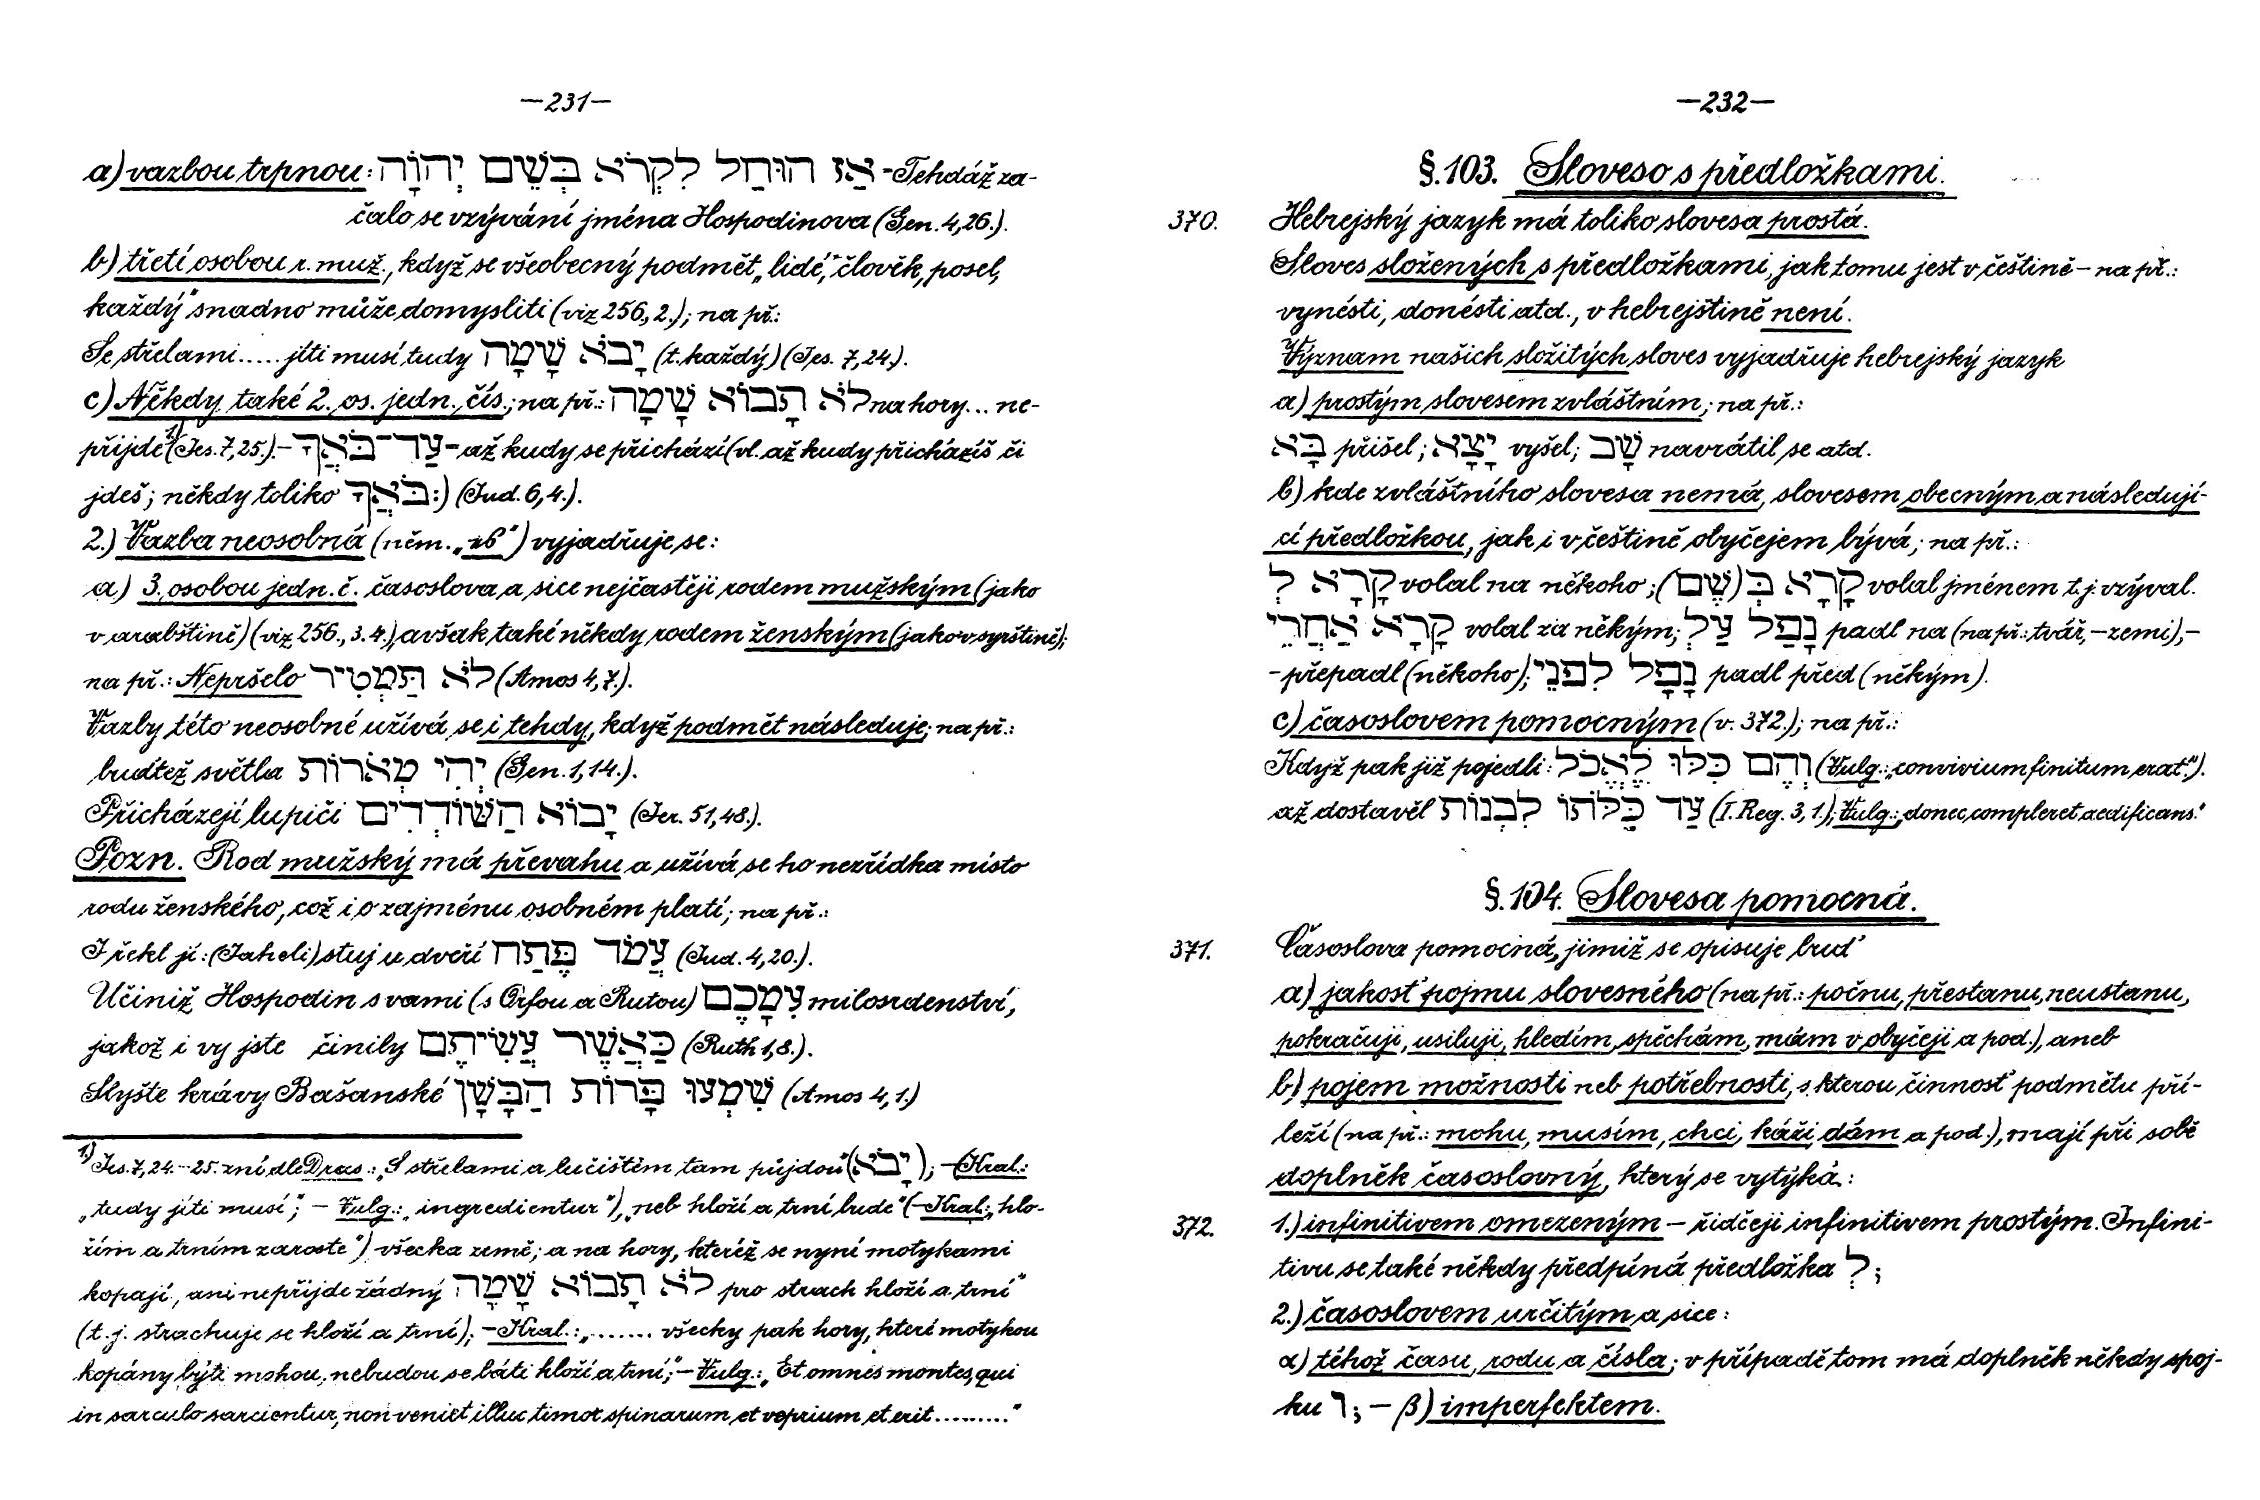 —231—
a) vazbou trpnou: אַז הוּחַל לִקְרֹא בְּשֵׁם יְהוָֹה -Tehdáž za-
čalo se vzývání jména Hospodinova (Gen. 4,26.).
b) třetí osobou r. muž., když se všeobecný podmět „lidé," člověk, posel,
každý" snadno může domysliti (viz 256, 2.); na př.:
Se střelami..... jíti musí tudy יָבֹא שָׁמָּה (t. každý) (Jes. 7, 24.).
c) Někdy také 2. os. jedn. čís.; na př.: לֹא תָבוֹא שָׁמָּה na hory... ne-
přijde¹) (Jes. 7, 25.).- עַד־בֹּאֲךָ - až kudy se přichází (vl. až kudy přicházíš či
jdeš; někdy toliko בֹּאֲךָ:) (Jud. 6, 4.).
2.) Vazba neosobná (něm. „es") vyjadřuje se:
a) 3. osobou jedn. č. časoslova a sice nejčastěji rodem mužským (jako
v arabštině) (viz 256., 3. 4.), avšak také někdy rodem ženským (jako v syrštině);
na př.: Nepršelo לֹא תַּמְטִיר (Amos 4, 7.).
Vazby této neosobné užívá se i tehdy, když podmět následuje; na př.:
buďtež světla יְהִי מְאֹרוֹת (Gen. 1, 14.).
Přicházejí lupiči יָבוֹא הַשּׁוֹדְדִים (Jer. 51, 48.).
Pozn. Rod mužský má převahu a užívá se ho nezřídka místo
rodu ženského, což i o zajménu osobném platí; na př.:
I řekl jí: (Jaheli) stuj u dveří עֲמֹד פֶּתַח (Jud. 4, 20.).
Učiniž Hospodin s vami (s Orfou a Rutou) עִמָּכֶם milosrdenství,
jakož i vy jste činily כַּאֲשֶׁר עֲשִׂיתֶם (Ruth 1, 8.).
Slyšte krávy Bašanské שִׁמְעוּ פָּרוֹת הַבָּשָׁן (Amos 4, 1.)
¹) Jes. 7, 24.-25. zní dle Dras.: „S střelami a lučištěm tam půjdou" (יָבֹא); -(Kral.:
„tudy jíti musí"; - Vulg.: „ingredientur"), „neb hloží a trní bude" (-Kral.: „hlo-
žím a trním zaroste") všecka země; a na hory, kteréž se nyní motykami
kopají, ani nepřijde žádný לֹא תָבוֹא שָׁמָּה pro strach hloží a trní"
(t. j. strachuje se hloží a trní); -Kral.: „....... všecky pak hory, které motykou
kopány býti mohou, nebudou se báti hloží a trní;" - Vulg.: „Et omnes montes, qui
in sarculo sarcientur, non veniet illuc timor spinarum et veprium et erit........."
—232—
§. 103. Sloveso s předložkami.
370. Hebrejský jazyk má toliko slovesa prostá.
Sloves složených s předložkami, jak tomu jest v češtině - na př.:
vynésti, donésti atd., v hebrejštině není.
Význam našich složitých sloves vyjadřuje hebrejský jazyk
a) prostým slovesem zvláštním; na př.:
בָּא přišel; יָצָא vyšel; שָׁב navrátil se atd.
b) kde zvláštního slovesa nemá, slovesem obecným a následují-
cí předložkou, jak i v češtině obyčejem bývá; na př.:
קָרָא לְ volal na někoho; קָרָא בְּ(שֵׁם) volal jménem t. j. vzýval.
קָרָא אַחֲרֵי volal za někým; נָפַל עַל padl na (na př.: tvář, - zemi), -
- přepadl (někoho); נָפָל לִפְנֵי padl před (někým).
c) časoslovem pomocným (v. 372.); na př.:
Když pak již pojedli: וְהֶם כִּלּוּ לֶאֱכֹל (Vulg.: „convivium finitum erat.").
až dostavěl עַד כַּלֹּתוֹ לִבְנוֹת (I. Reg. 3, 1.); Vulg.: „donec compleret aedificans."
§. 104. Slovesa pomocná.
371. Časoslova pomocná, jimiž se opisuje buď
a) jakosť pojmu slovesného (na př.: počnu, přestanu, neustanu,
pokračuji, usiluji, hledím, spěchám, mám v obyčeji a pod.), aneb
b) pojem možnosti neb potřebnosti, s kterou činnosť podmětu pří-
leží (na př.: mohu, musím, chci, káži, dám a pod.), mají při sobě
doplněk časoslovný, který se vytýká:
372. 1.) infinitivem omezeným - řidčeji infinitivem prostým. Infini-
tivu se také někdy předpíná předložka לְ;
2.) časoslovem určitým a sice:
α) téhož času, rodu a čísla; v případě tom má doplněk někdy spoj-
ku וְ; - β) imperfektem.